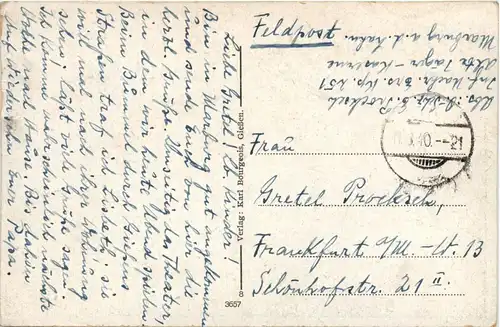 Liebe Gretel! Lb. Kinder!
Bin in Marburg gut angekommen
und sende Euch von hier die
herzl. Grüße. Umseitig das Theater,
in dem wir heute Abend spielen.
Beim Bummel durch Gießens
Straßen traf ich Lisbeth, sie
will mal nach ihrer Wohnung
sehen, läßt viele Grüße sagen.
Ich komme wahrscheinlich nächste
Woche mal raus. Bis dahin
auf Wiedersehn Euer
Papa.
Verlag: Karl Bourgeois, Gießen.
3657
8
Feldpost
Abs.: Procksch
Inf. Nachr. Ers. Kp. 251
Alte Jäger-Kaserne
Marburg a. d. Lahn.
40.--21
Frau
Gretel Procksch,
Frankfurt a/M.-W. 13
Schönhofstr. 21 II.